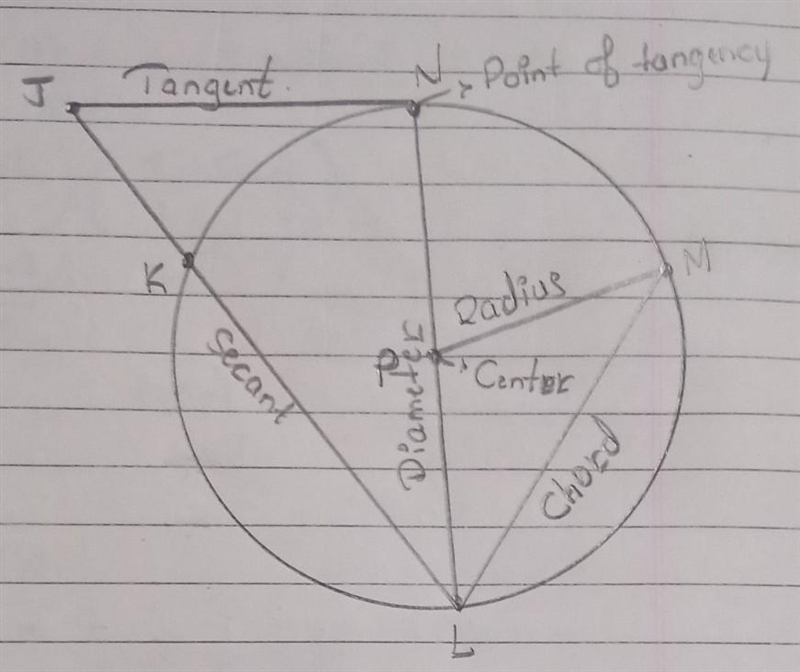 J
Tangent.
N
Point of tangency
K
M
Radius
P
Center
Diameter
Secant
Chord
L